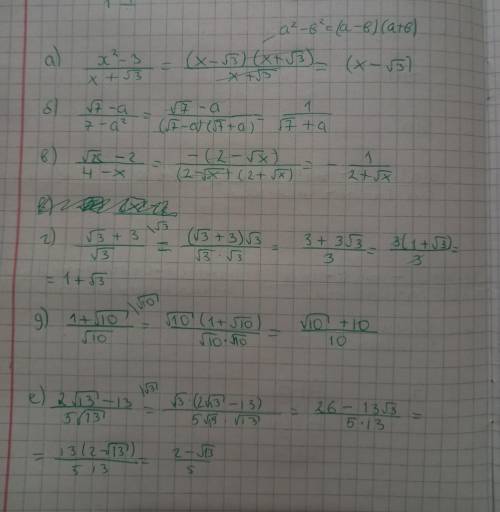 a² - в² = (a - в)(a + в)
а) \frac{x² - 3}{x + √3} = \frac{(x - √3)(x + √3)}{x + √3} = (x - √3)
б) \frac{√7 - a}{7 - a²} = \frac{√7 - a}{(√7 - a)(√7 + a)} = \frac{1}{√7 + a}
в) \frac{√x - 2}{4 - x} = \frac{-(2 - √x)}{(2 - √x)(2 + √x)} = - \frac{1}{2 + √x}
г) \frac{√3 + 3}{√3}^{\√3} = \frac{(√3 + 3)√3}{√3 · √3} = \frac{3 + 3√3}{3} = \frac{3(1 + √3)}{3} =
= 1 + √3
д) \frac{1 + √10}{√10}^{\√10} = \frac{√10 (1 + √10)}{√10 · √10} = \frac{√10 + 10}{10}
е) \frac{2√13 - 13}{5√13}^{\√13} = \frac{√13 · (2√13 - 13)}{5√13 · √13} = \frac{26 - 13√13}{5 · 13} =
= \frac{13(2 - √13)}{5 · 13} = \frac{2 - √13}{5}